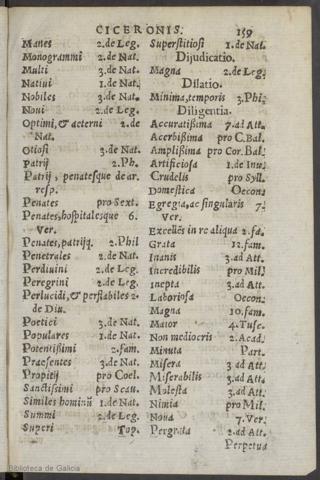 CICERONIS. 159
Manes 2.de Leg.
Monogrammi 2.de Nat.
Multi 3.de Nat.
Natiui 1.de Nat.
Nobiles 3.de Nat.
Noui 2.de Leg.
Optimi, & aeterni 2.de
Nat.
Otiosi 3.de Nat.
Patrij 2.Ph.
Patrij, penatesque de ar.
resp.
Penates pro Sext.
Penates, hospitalesque 6.
Ver.
Penates, patrijq. 2.Phil
Penetrales 2.de Nat.
Perdiuini 2.de Leg.
Peregrini 2.de Leg.
Perlucidi, & perflabiles 2.
de Diu.
Poetici 3.de Nat.
Populares 1.de Nat.
Potentißimi 2.fam.
Praesentes 3.de Nat.
Propitij pro Coel.
Sanctissimi pro Scau.
Similes hominũ 1.de Nat.
Summi 2.de Leg.
Superi Top.
Superstitiosi 1.de Nat.
Dijudicatio.
Magna 2.de Leg.
Dilatio.
Minima, temporis 3.Phi.
Diligentia.
Accuratißima 7.ad Att.
Acerbißima pro C.Bal.
Amplißima pro Cor.Bal.
Artificiosa 1.de Inu.
Crudelis pro Syll.
Domestica Oecon.
Egregia, ac singularis 7.
Ver.
Excellẽs in re aliqua 2.fa.
Grata 12.fam.
Inanis 3.ad Att.
Incredibilis pro Mil.
Inepta 3.ad Att.
Laboriosa Oecon.
Magna 10.fam.
Maior 4.Tusc.
Non mediocris 2.Acad.
Minuta Part.
Misera 3.ad Att.
Miserabilis 3.ad Att.
Molesta 3.ad Att.
Nimia pro Mil.
Noua 7.Ver.
Pergrata 2.ad Att.
Perpetua
Biblioteca de Galicia